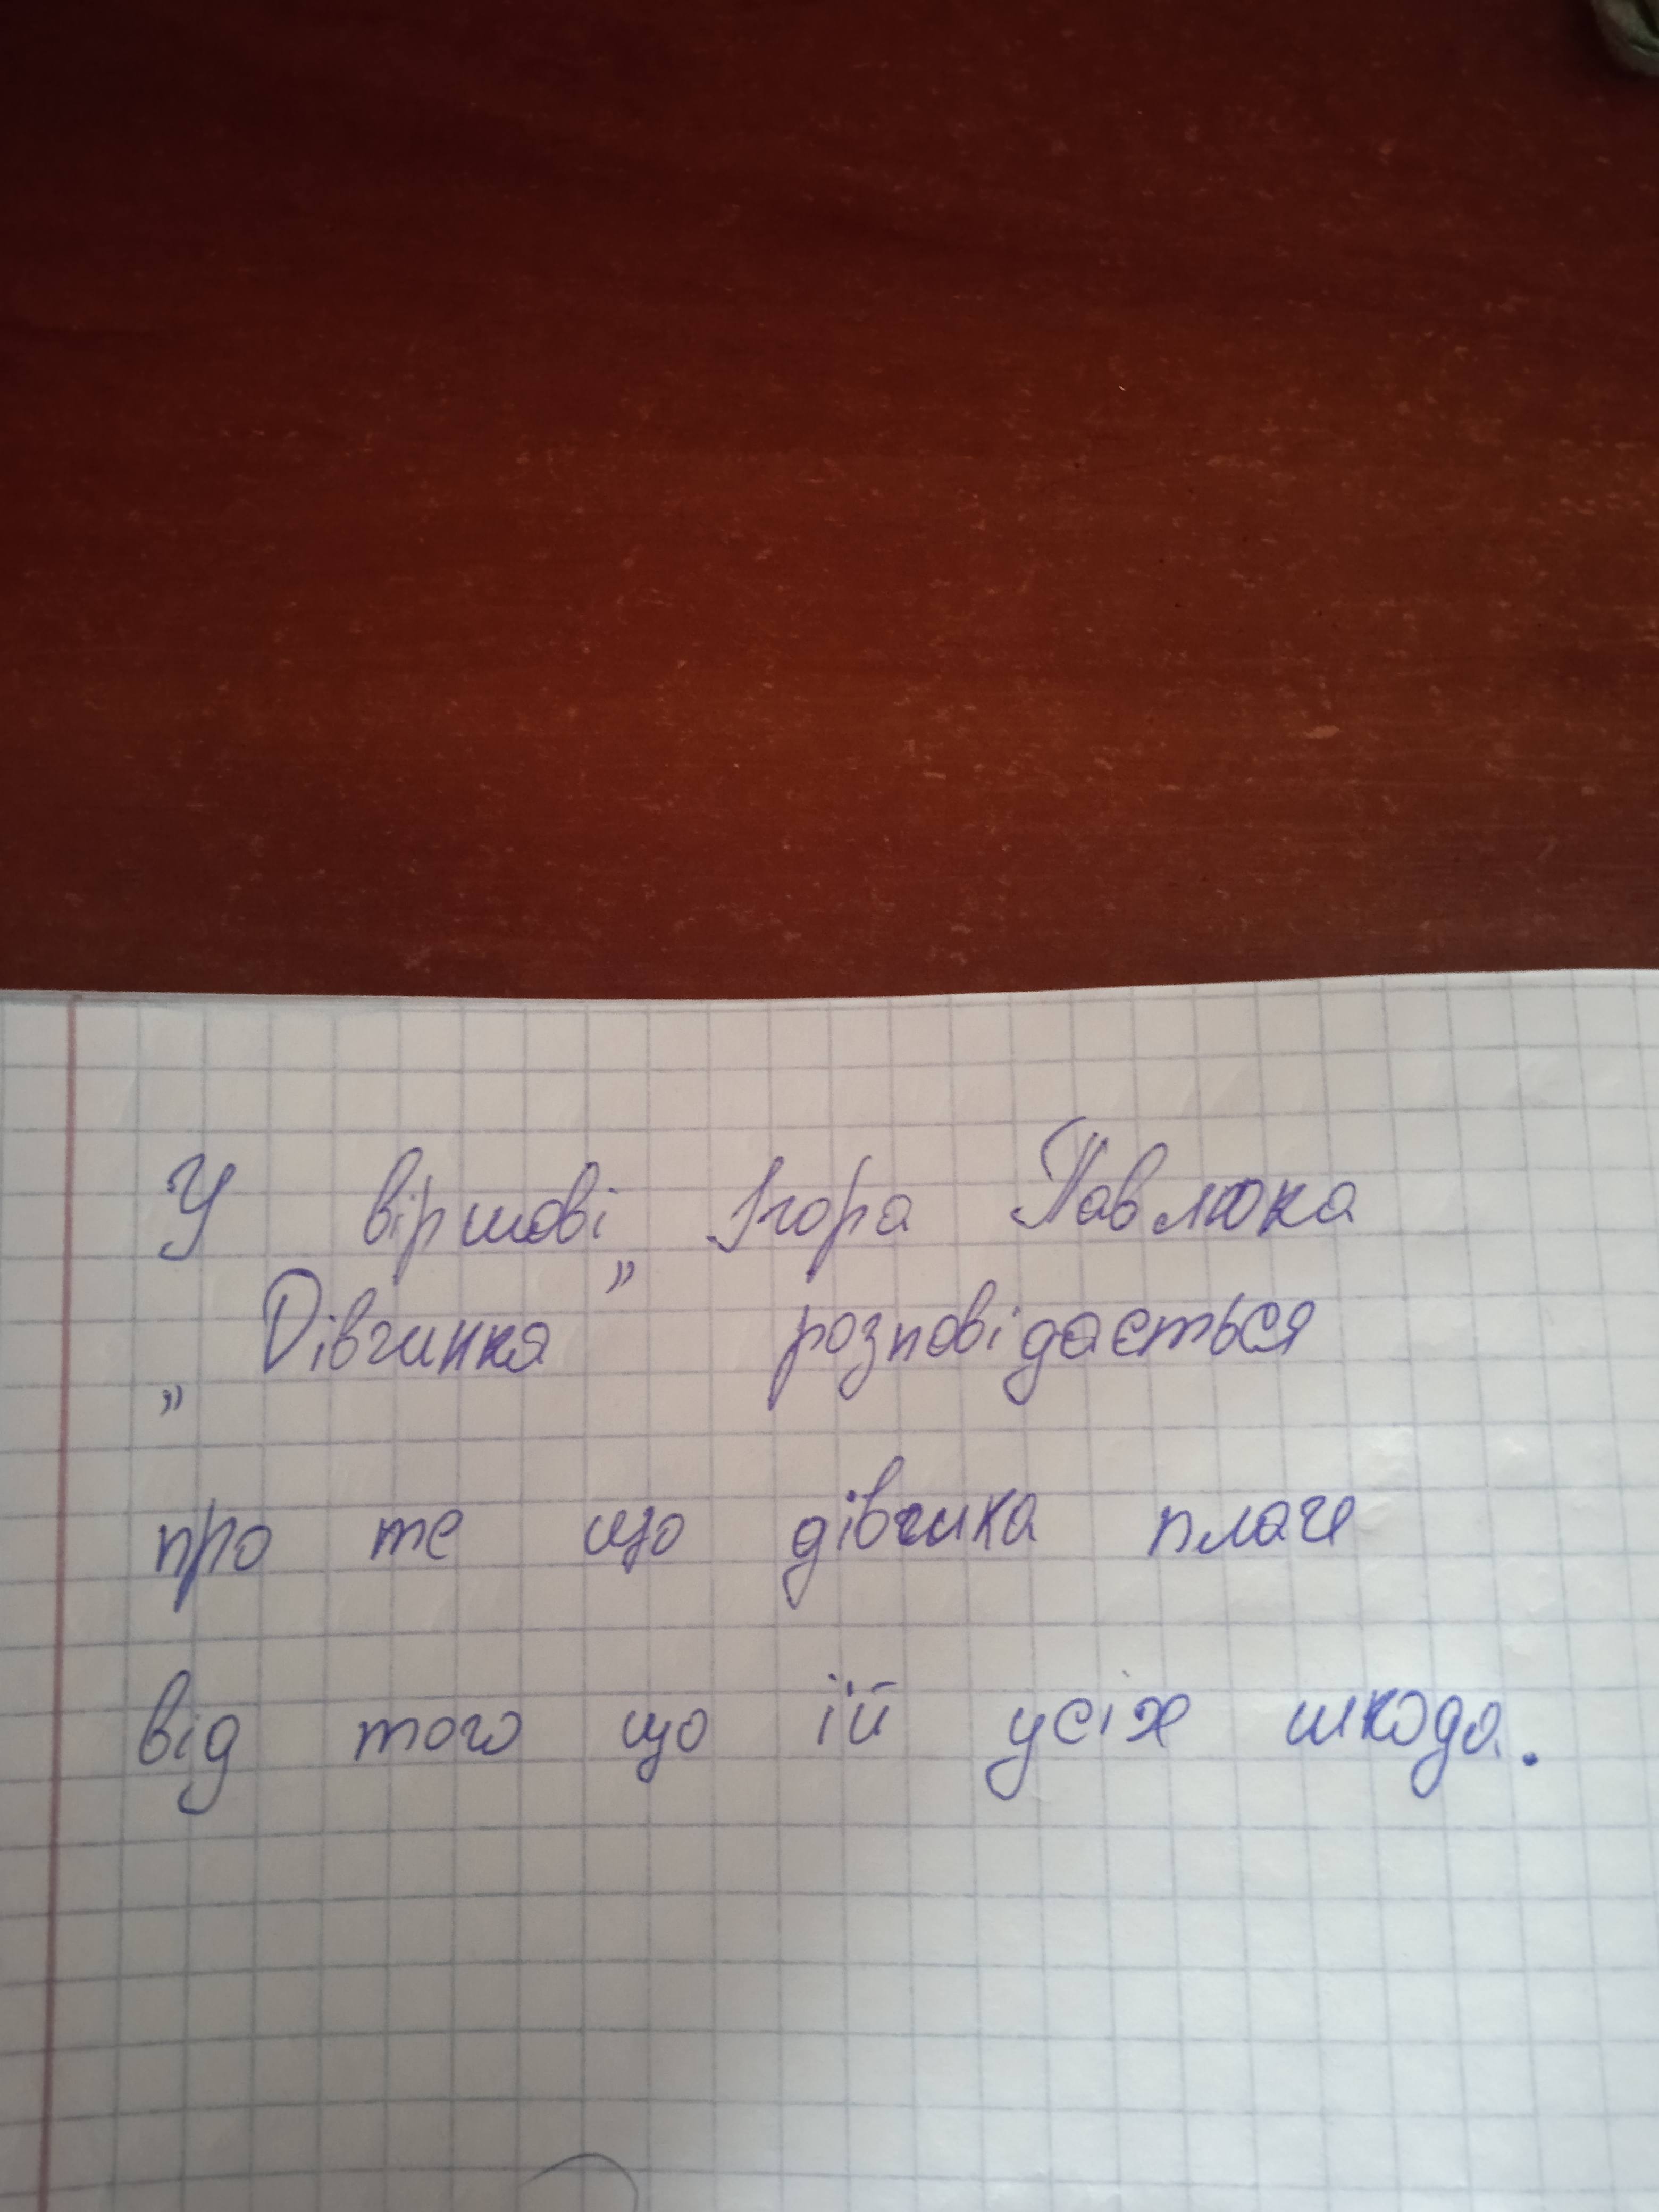 У віршові Ігора Павлюка
„Дівчинка” розповідається
про те що дівчика плаче
від того що їй усіх шкода.